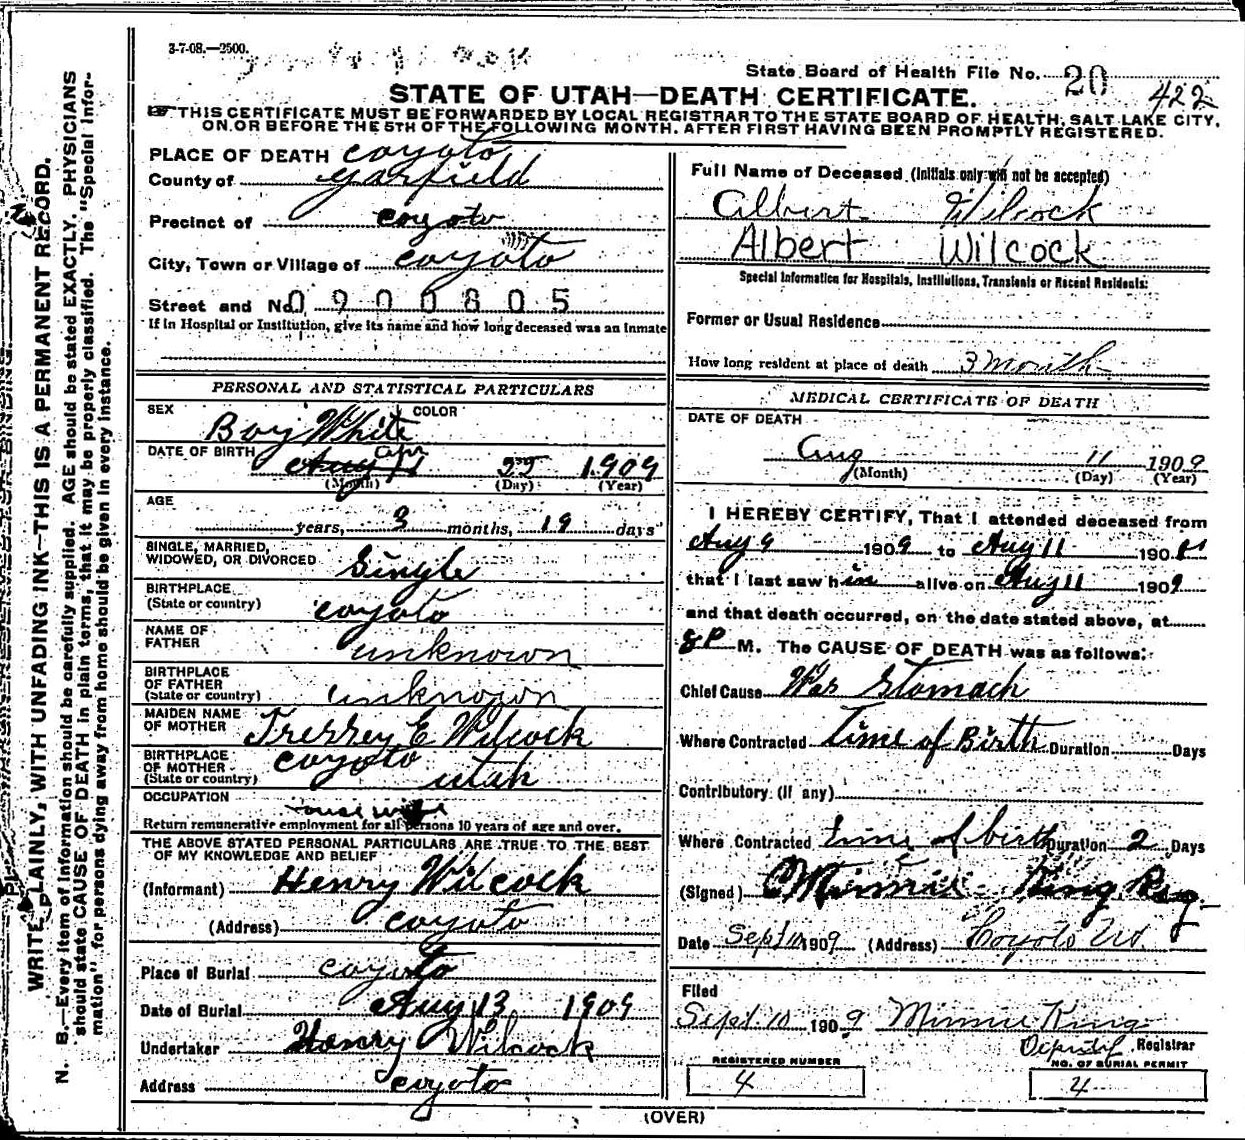 3-7-08.—2500.
State Board of Health File No. 20 422
STATE OF UTAH—DEATH CERTIFICATE.
THIS CERTIFICATE MUST BE FORWARDED BY LOCAL REGISTRAR TO THE STATE BOARD OF HEALTH, SALT LAKE CITY,
ON OR BEFORE THE 5TH OF THE FOLLOWING MONTH. AFTER FIRST HAVING BEEN PROMPTLY REGISTERED.
WRITE PLAINLY, WITH UNFADING INK—THIS IS A PERMANENT RECORD.
N. B.—Every item of information should be carefully supplied. AGE should be stated EXACTLY. PHYSICIANS
should state CAUSE OF DEATH in plain terms, that it may be properly classified. The "Special Infor-
mation" for persons dying away from home should be given in every instance.
PLACE OF DEATH coyoto
County of garfield
Precinct of coyoto
City, Town or Village of coyoto
Street and No. 0900805
If in Hospital or Institution, give its name and how long deceased was an inmate
PERSONAL AND STATISTICAL PARTICULARS
SEX COLOR
Boy White
DATE OF BIRTH Apr
Aug 11 22 1909
(Month) (Day) (Year)
AGE
years, 3 months, 19 days
SINGLE, MARRIED,
WIDOWED, OR DIVORCED Single
BIRTHPLACE
(State or country) coyoto
NAME OF
FATHER unknown
BIRTHPLACE
OF FATHER
(State or country) unknown
MAIDEN NAME
OF MOTHER E Wilcock
BIRTHPLACE
OF MOTHER
(State or country) coyoto utah
OCCUPATION
Return remunerative employment for all persons 10 years of age and over.
THE ABOVE STATED PERSONAL PARTICULARS ARE TRUE TO THE BEST
OF MY KNOWLEDGE AND BELIEF
(Informant) Henry Wilcock
(Address) coyoto
Place of Burial coyoto
Date of Burial Aug 13 1909
Undertaker Henry Wilcock
Address coyoto
Full Name of Deceased (Initials only will not be accepted)
Albert Wilcock
Albert Wilcock
Special Information for Hospitals, Institutions, Transients or Recent Residents:
Former or Usual Residence
How long resident at place of death 3 month
MEDICAL CERTIFICATE OF DEATH
DATE OF DEATH
Aug 11 1909
(Month) (Day) (Year)
I HEREBY CERTIFY, That I attended deceased from
Aug 9 1909 to Aug 11 190
that I last saw him alive on Aug 11 1909
and that death occurred, on the date stated above, at
8 P M. The CAUSE OF DEATH was as follows:
Chief Cause Was Stomach
Where Contracted Time of Birth Duration Days
Contributory (if any)
Where Contracted time of birth Duration 2 Days
(Signed) Minnie King Reg
Date Sept 10 1909 (Address) Coyoto Ut
Filed
Sept 10 1909 Minnie King
Deputy Registrar
REGISTERED NUMBER
4
NO. OF BURIAL PERMIT
4
(OVER)